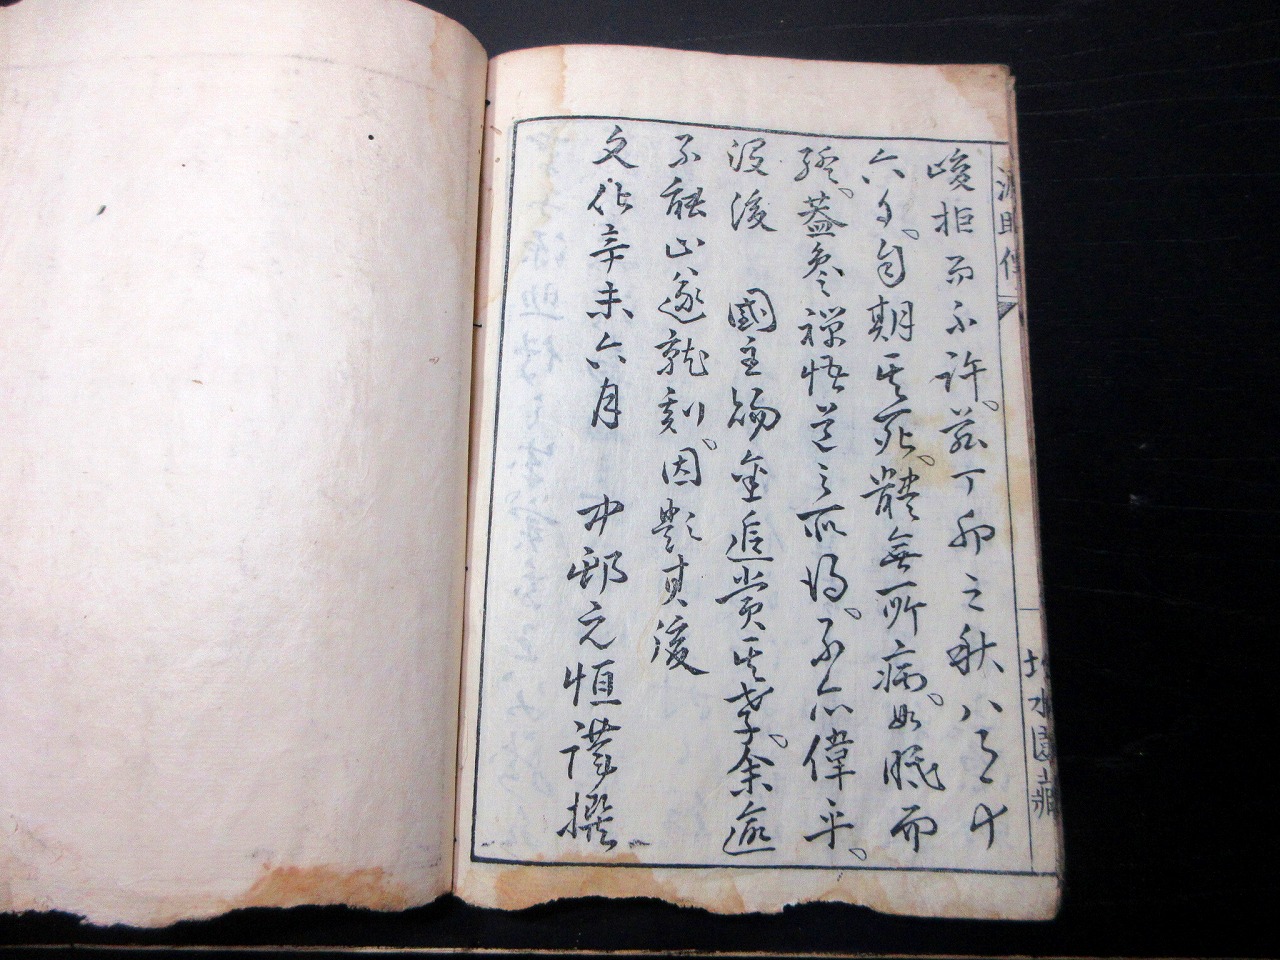 峻拒而不許。茲丁卯之秋八月十
六夕。自期其死。體無所病。如眠而
終。蓋參禪悟道之所得。不亦偉乎。
没後 國主賜金追賞其孝。余逾
不能止遂就刻。因題其後
文化辛未六月 中邨元恒謹撰
水園藏